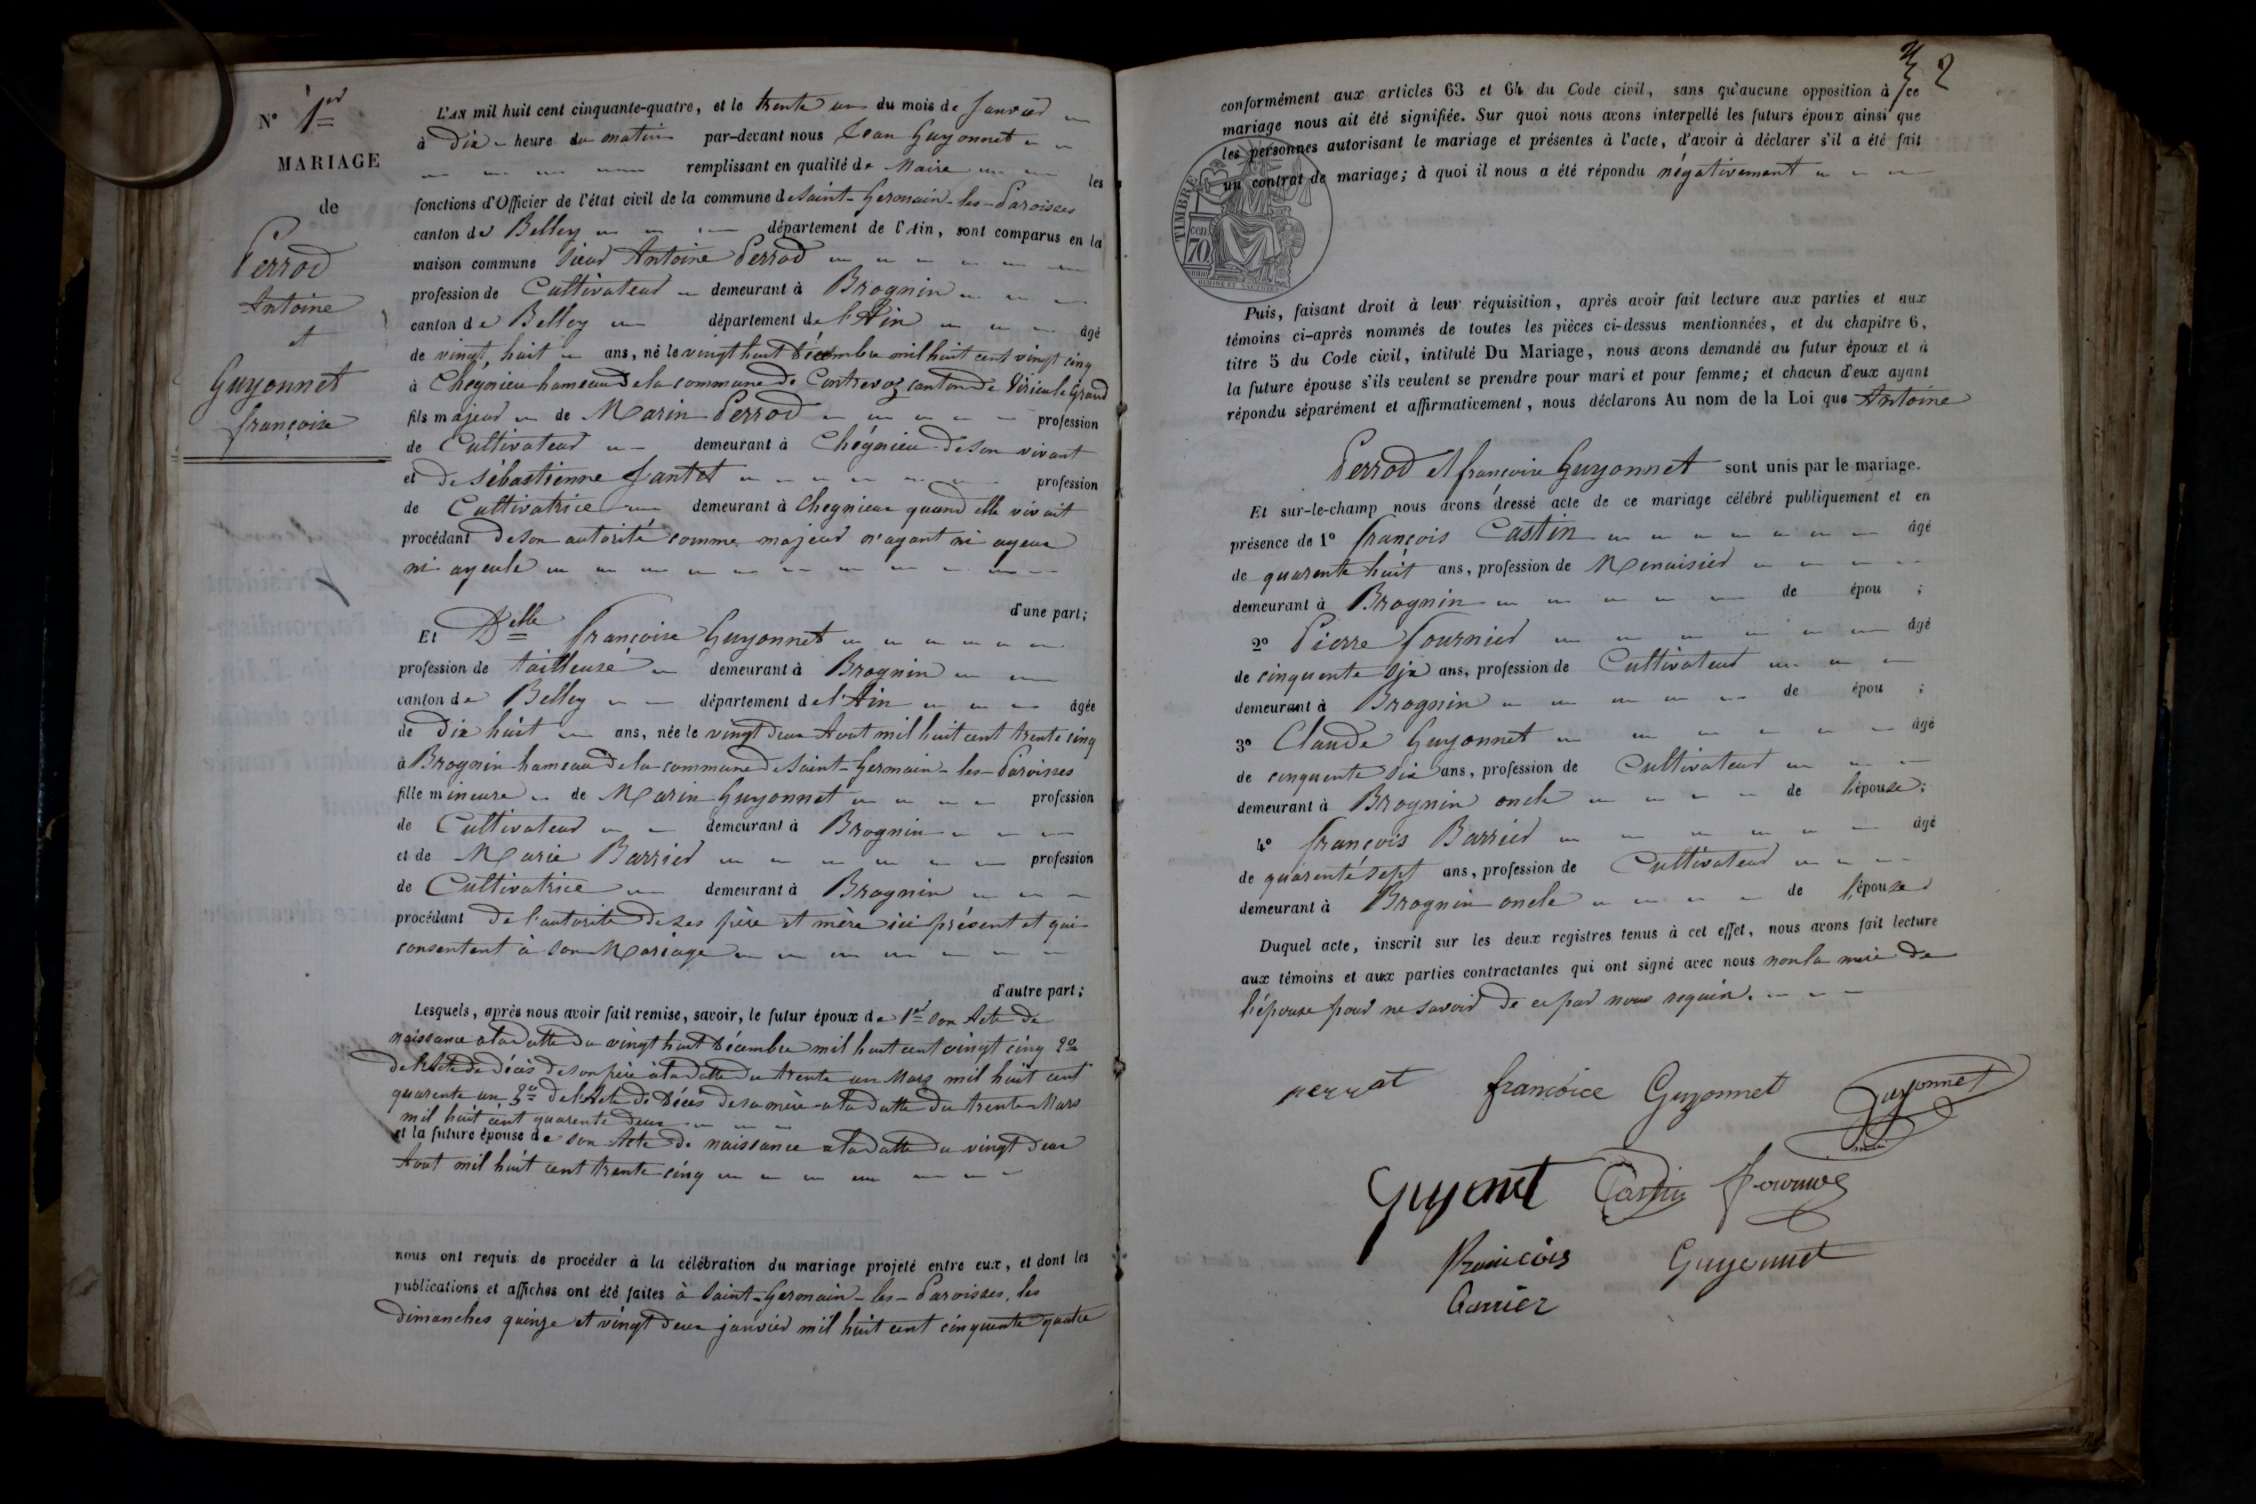 N° 1er
MARIAGE
de
Perrod
Antoine
et
Guyonnet
françoise
L'AN mil huit cent cinquante-quatre, et le trente un du mois de Janvier
à Dix heure du matin par-devant nous Jean Guyonnet
remplissant en qualité de Maire les
fonctions d'Officier de l'état civil de la commune de Saint-Germain-les-Paroisses
canton de Belley département de l'Ain, sont comparus en la
maison commune sieur Antoine Perrod
profession de Cultivateur demeurant à Brognin
canton de Belley département de l'Ain âgé
de vingt huit ans, né le vingt huit Décembre mil huit cent vingt cinq
à Chégnieu hameau de la commune de Contrevoz canton de Virieu le Grand
fils majeur de Marin Perrod profession
de Cultivateur demeurant à Chégnieu de son vivant
et de Sébastienne Jantet profession
de Cultivatrice demeurant à Chegnieu quand elle vivait
procédant de son autorité comme majeur n'ayant ni ayeux
ni ayeule
d'une part;
Et Delle françoise Guyonnet
profession de tailleuse demeurant à Brognin
canton de Belley département de l'Ain âgée
de Dix huit ans, née le vingt deux Aout mil huit cent trente cinq
à Brognin hameau de la commune de Saint-Germain-les-Paroisses
fille mineure de Marin Guyonnet profession
de Cultivateur demeurant à Brognin
et de Marie Barrier profession
de Cultivatrice demeurant à Brognin
procédant de l'autorité de ses père et mère ici présent et qui
consentent à son Mariage
d'autre part;
Lesquels, après nous avoir fait remise, savoir, le futur époux de 1er son Acte de
naissance a la datte du vingt huit Décembre mil huit cent vingt cinq 2°
de l'Acte de décès de son père a la datte du trente un Mars mil huit cent
quarente un 3° de l'Acte de Décès de sa mère a la datte du trente Mars
mil huit cent quarente deux
et la future épouse de son Acte de naissance a la datte du vingt deux
Aout mil huit cent trente cinq
nous ont requis de procéder à la célébration du mariage projeté entre eux, et dont les
publications et affiches ont été faites à Saint-Germain-les-Paroisses, les
dimanches quinze et vingt deux janvier mil huit cent cinquante quatre
2
conformément aux articles 63 et 64 du Code civil, sans qu'aucune opposition à ce
mariage nous ait été signifiée. Sur quoi nous avons interpellé les futurs époux ainsi que
les personnes autorisant le mariage et présentes à l'acte, d'avoir à déclarer s'il a été fait
un contrat de mariage; à quoi il nous a été répondu négativement
TIMBRE
70
Puis, faisant droit à leur réquisition, après avoir fait lecture aux parties et aux
témoins ci-après nommés de toutes les pièces ci-dessus mentionnées, et du chapitre 6,
titre 5 du Code civil, intitulé Du Mariage, nous avons demandé au futur époux et à
la future épouse s'ils veulent se prendre pour mari et pour femme; et chacun d'eux ayant
répondu séparément et affirmativement, nous déclarons Au nom de la Loi que Antoine
Perrod et françoise Guyonnet sont unis par le mariage.
Et sur-le-champ nous avons dressé acte de ce mariage célébré publiquement et en
présence de 1° françois Castin âgé
de quarente huit ans, profession de Menuisier
demeurant à Brognin de épou ;
2° Pierre fournier âgé
de cinquente six ans, profession de Cultivateur
demeurant à Brognin de épou ;
3° Claude Guyonnet âgé
de cinquente six ans, profession de Cultivateur
demeurant à Brognin oncle de l'épouse;
4° françois Barrier âgé
de quarente sept ans, profession de Cultivateur
demeurant à Brognin oncle de l'épouse
Duquel acte, inscrit sur les deux registres tenus à cet effet, nous avons fait lecture
aux témoins et aux parties contractantes qui ont signé avec nous non la mère de
l'épouse pour ne savoir de ce par nous requise.
perrot francoice Guyonnet Guyonnet
Guyonet Castin fournier
francois Guyonnet
Barrier